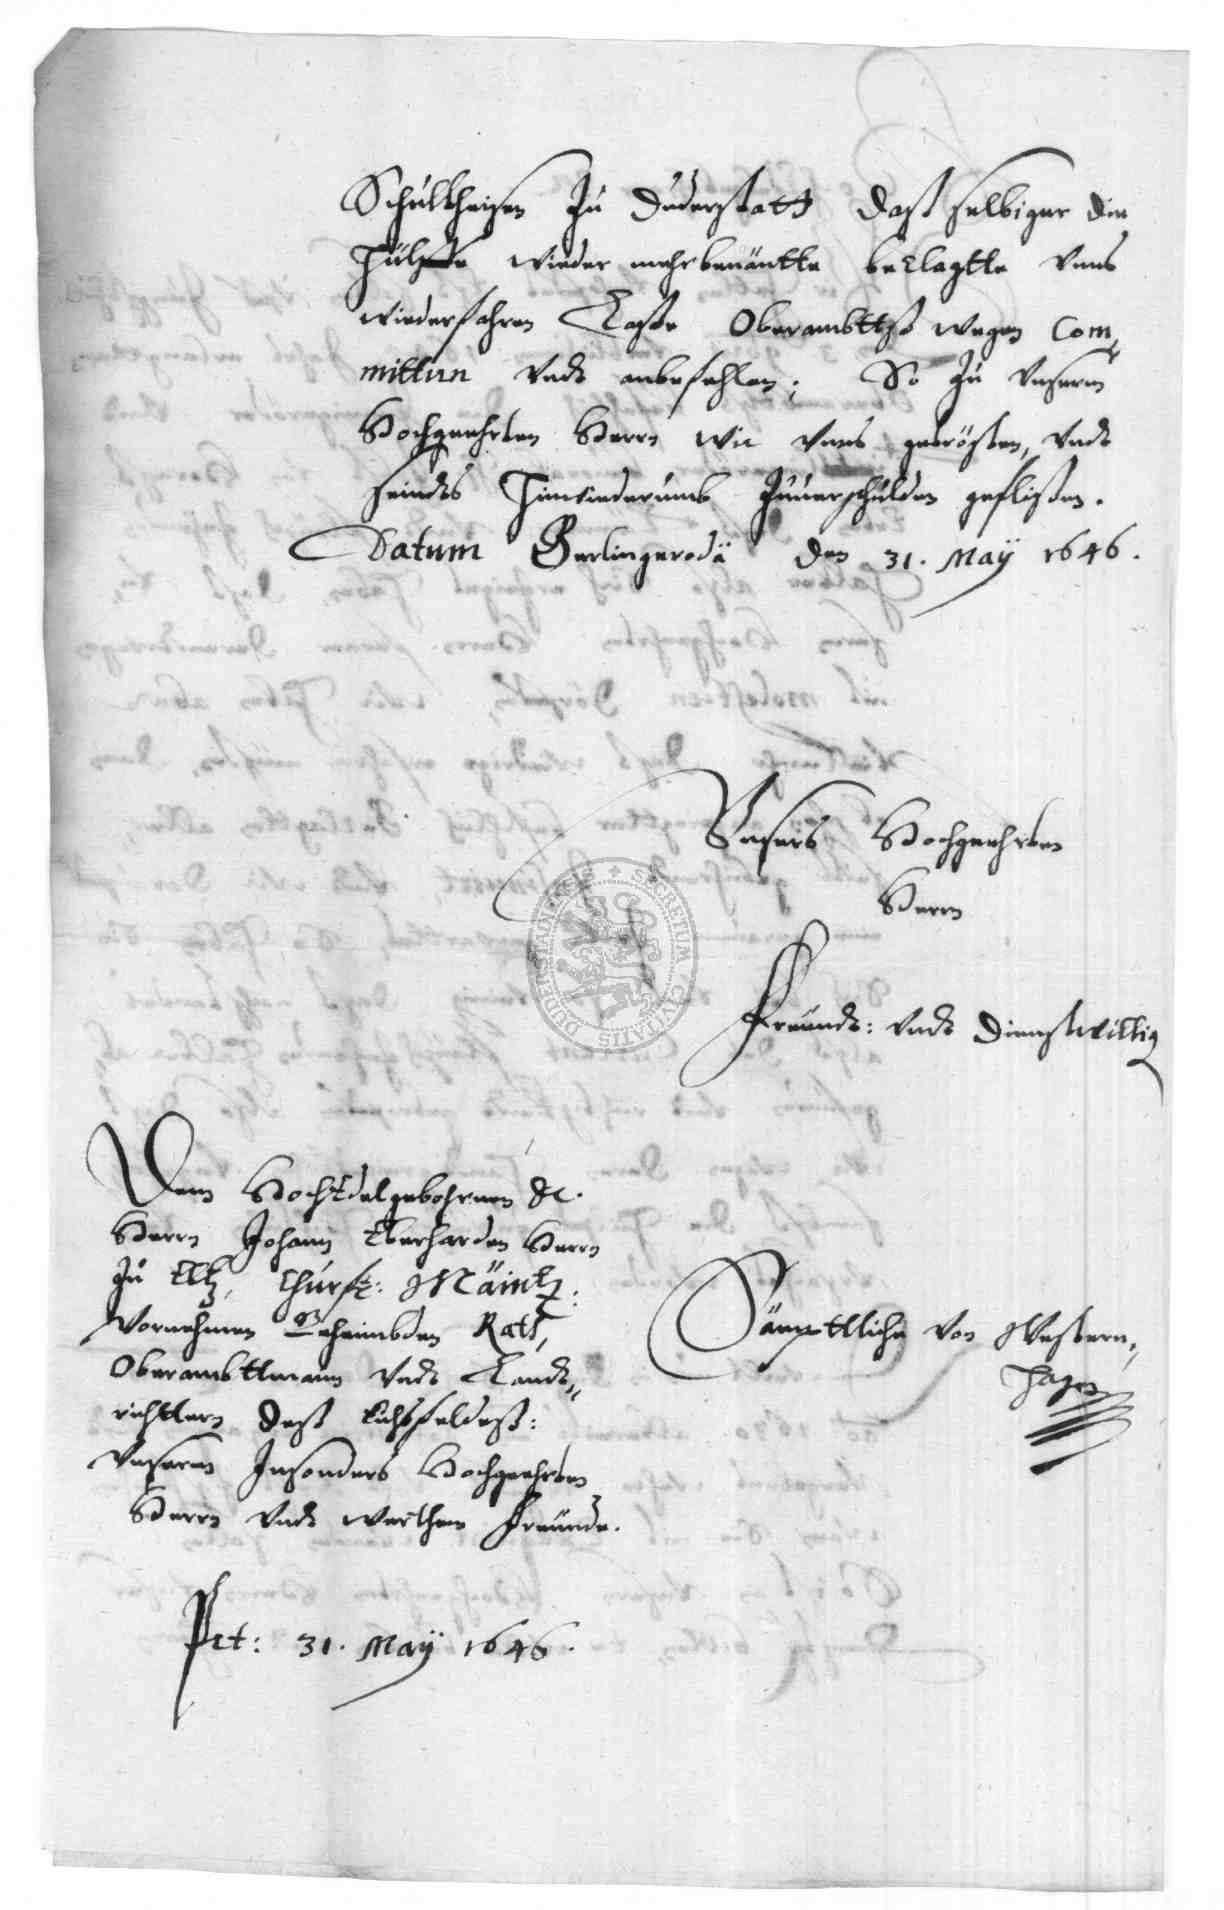 Schultheisen Zu Duderstatt dast selbiger die
Hülffe wieder mehrbenäntte beclagtte Vnns
wiederfahren Laße Oberambttß wegen Com„
mittirn Vndt anbefehlen; So Zu Vnserm
Hochgeehrten Herrn wir Vnns getrösten, Vndt
seindts Hinwiederumb Zuuerschulden geflißen.
Datum Berlingerodä den 31. Maÿ 1646.
Vnsers Hochgeehrten
Herrn
Freundt: Vndt Dienstwillig
Dem HochEdelgebohrnen &c.
Herrn Johann Eberharden Herrn
Zu Eltz, Churfr: Mäintz:
Vornehmen Geheimbden Rath,
Oberambttmann Vndt Landt„
richttern deß Eichßfeldeß:
Vnserm Insonders Hochgeehrten
Herrn Vndt werthem Freunde.
Sämpttliche von Western„
hagen
Prt: 31. Maÿ 1646.
SECRETUM CIVITATIS DUDERSTADENSIS